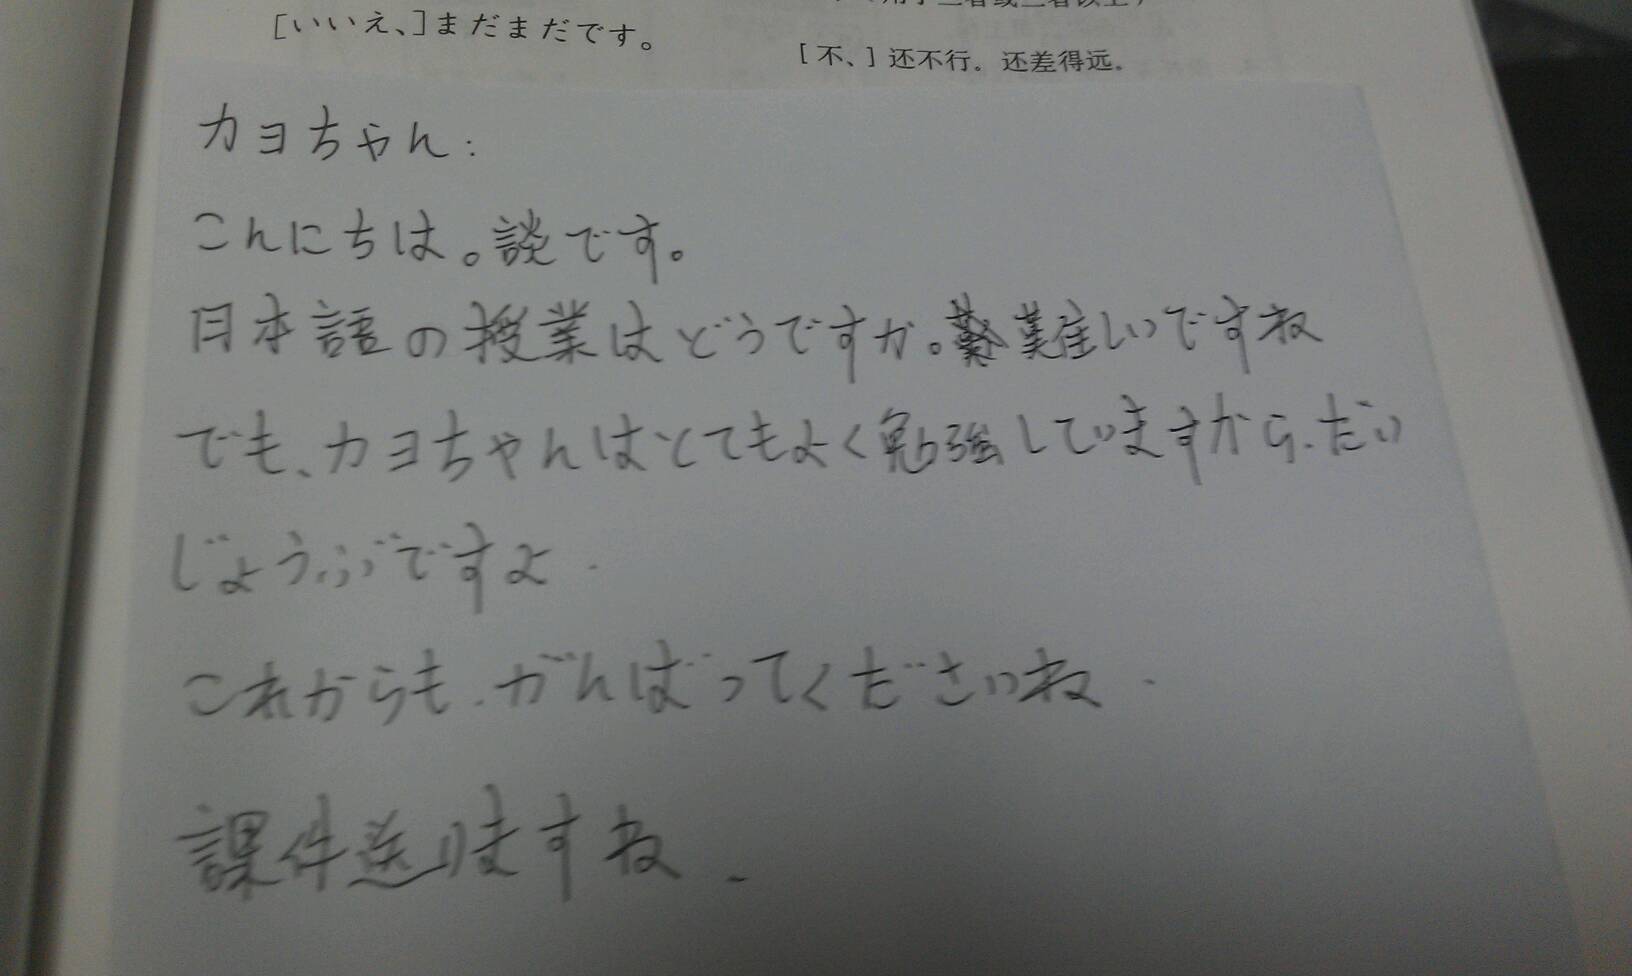 [いいえ、]まだまだです。
[不、]还不行。还差得远。
カヨちゃん:
こんにちは。談です。
日本語の授業はどうですか。難しいですね
でも、カヨちゃんはとてもよく勉強していますから、だい
じょうぶですよ.
これからも、がんばってくださいね.
課件送りますね.